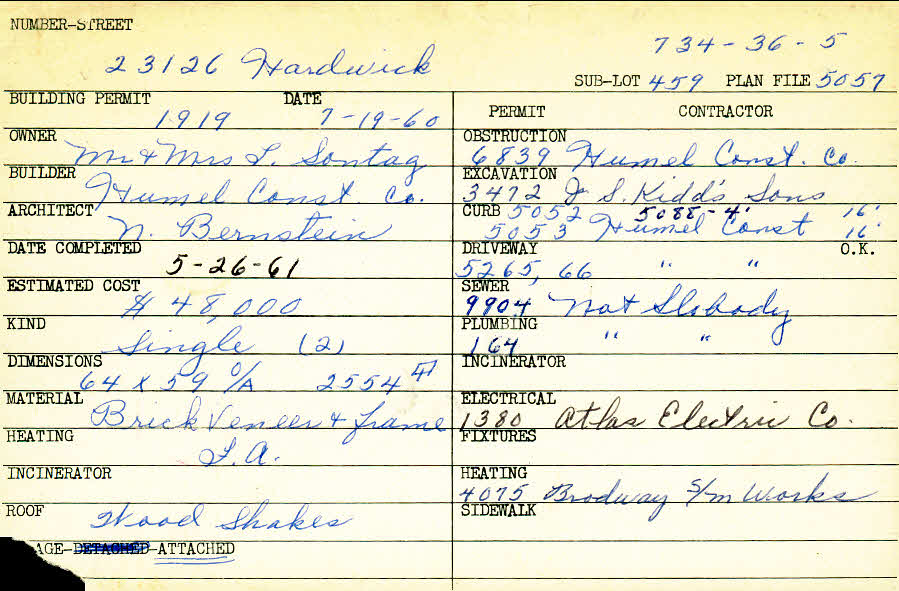 NUMBER-STREET
734-36-5
23126 Hardwick
SUB-LOT 459 PLAN FILE 5057
BUILDING PERMIT DATE
1919 7-19-60
OWNER
Mr & Mrs L. Sontag
BUILDER
Humel Const. Co.
ARCHITECT
N. Bernstein
DATE COMPLETED
5-26-61
ESTIMATED COST
$ 48,000
KIND
Single (2)
DIMENSIONS
64 x 59 O/A 2554 #
MATERIAL
Brick Veneer & frame
HEATING
F.A.
INCINERATOR
ROOF
Wood Shakes
AGE-DETACHED-ATTACHED
PERMIT CONTRACTOR
OBSTRUCTION
6839 Humel Const. Co.
EXCAVATION
3472 J S. Kidd's Sons
CURB 5052 5088-4' 16'
5053 Humel Const 16'
DRIVEWAY O.K.
5265, 66 " "
SEWER
9904 Nat Slobody
PLUMBING
164 " "
INCINERATOR
ELECTRICAL
1380 Atlas Electric Co.
FIXTURES
HEATING
4075 Brodway S/m Works
SIDEWALK